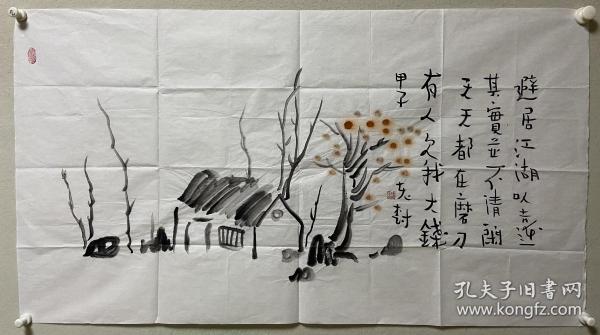 避居江湖以言遊
其實並不清閑
天天都在磨刀
有人欠我大錢
甲子
孔夫子旧书网
www.kongfz.com